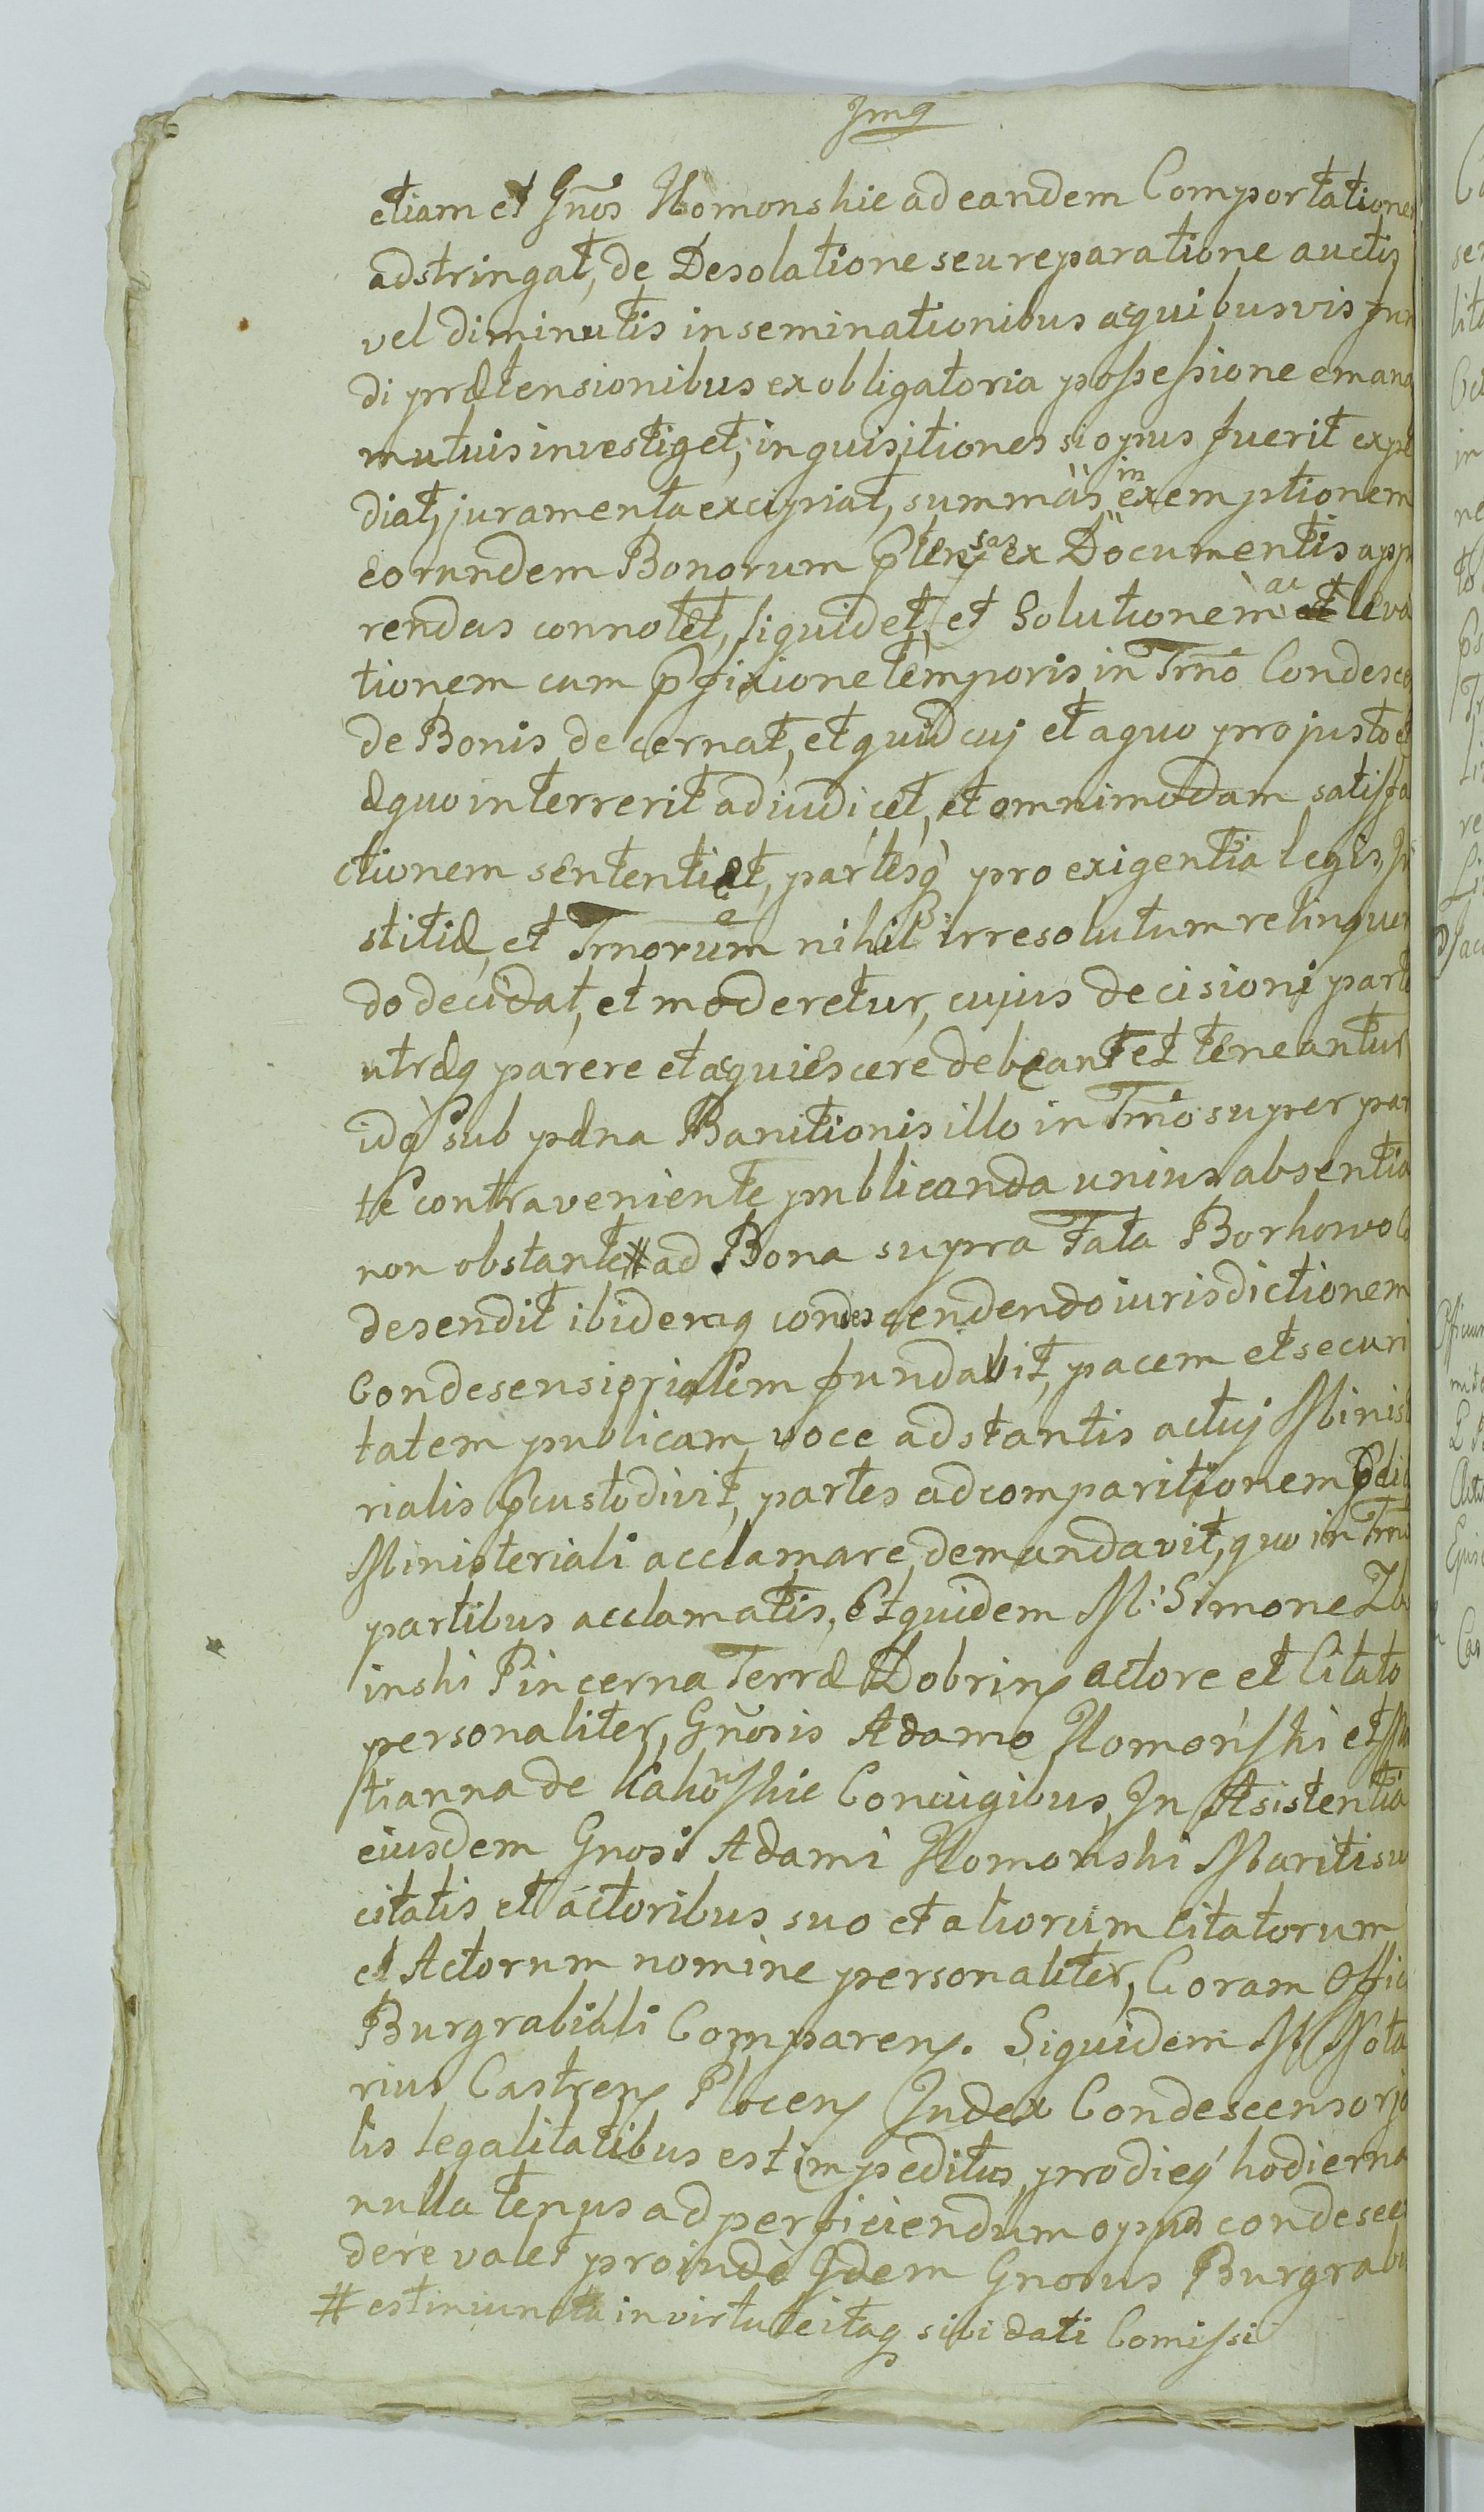 Jmq
etiam et Gnos Słomonskie ad eandem Comportationem
adstringat, de Desolatione seu reparatione auctis
vel diminutis inseminationibus aquibusvis
di prætensionibus ex obligatoria possessione emana
mutuis investiget, inquisitiones si opus fuerit expe
diat, juramenta excipiat, summas in exemptionem
eorundem Bonorum ptensas ex Documentis app
rendas connotet, liquidet, et Solutionem ac leva
tionem cum pfixione temporis in Trno Condesce
de Bonis decernat, et quid cuj et aquo pro justo et
æquo interrerit adiudicet, et omnimodam satisfa
ctionem sententiet, partesq pro exigentia legis, Ju
stitiæ, et Trnorum nihil irresolutum relinquen
do decidat, et moderetur, cujus decisioni parte
utræq parere et acquiescere debeant et teneantur
idq sub pæna Banitionis illo in Trno super par
te contraveniente publicanda unius absentia
non obstante # ad Bona supra Fata Borkowo
desendit ibidemq condescendendo iurisdictionem
Condesensorialem fundavit, pacem et securi
tatem publicam voce adstantis actuj Minist
rialis pcustodivit, partes ad comparitionem pdi
Ministeriali acclamare demandavit, quo in Trno
partibus acclamatis, Et quidem M: Simone Zb
inski Pincerna Terræ Dobrinen actore et Citato
personaliter, Gnosis Adamo Słomoński et
tianna de Conjugibus, In Asistentia
eiusdem Gnosi Adami Słomonski Mariti su
citatis et actoribus suo et aliorum citatorum
et Actorum nomine personaliter, Coram Offici
Burgrabiali Comparen. Siquidem M Nota
rius Castren Plocen Judex Condescensoria
lis legalitatibus est impeditus, pro dieq hodierna
nulla tenus ad perficiendum opus condescen
dere valet proinde Idem Gnosus Burgrabi
# est iniuncta in virtute itaq sibi dati Comissi